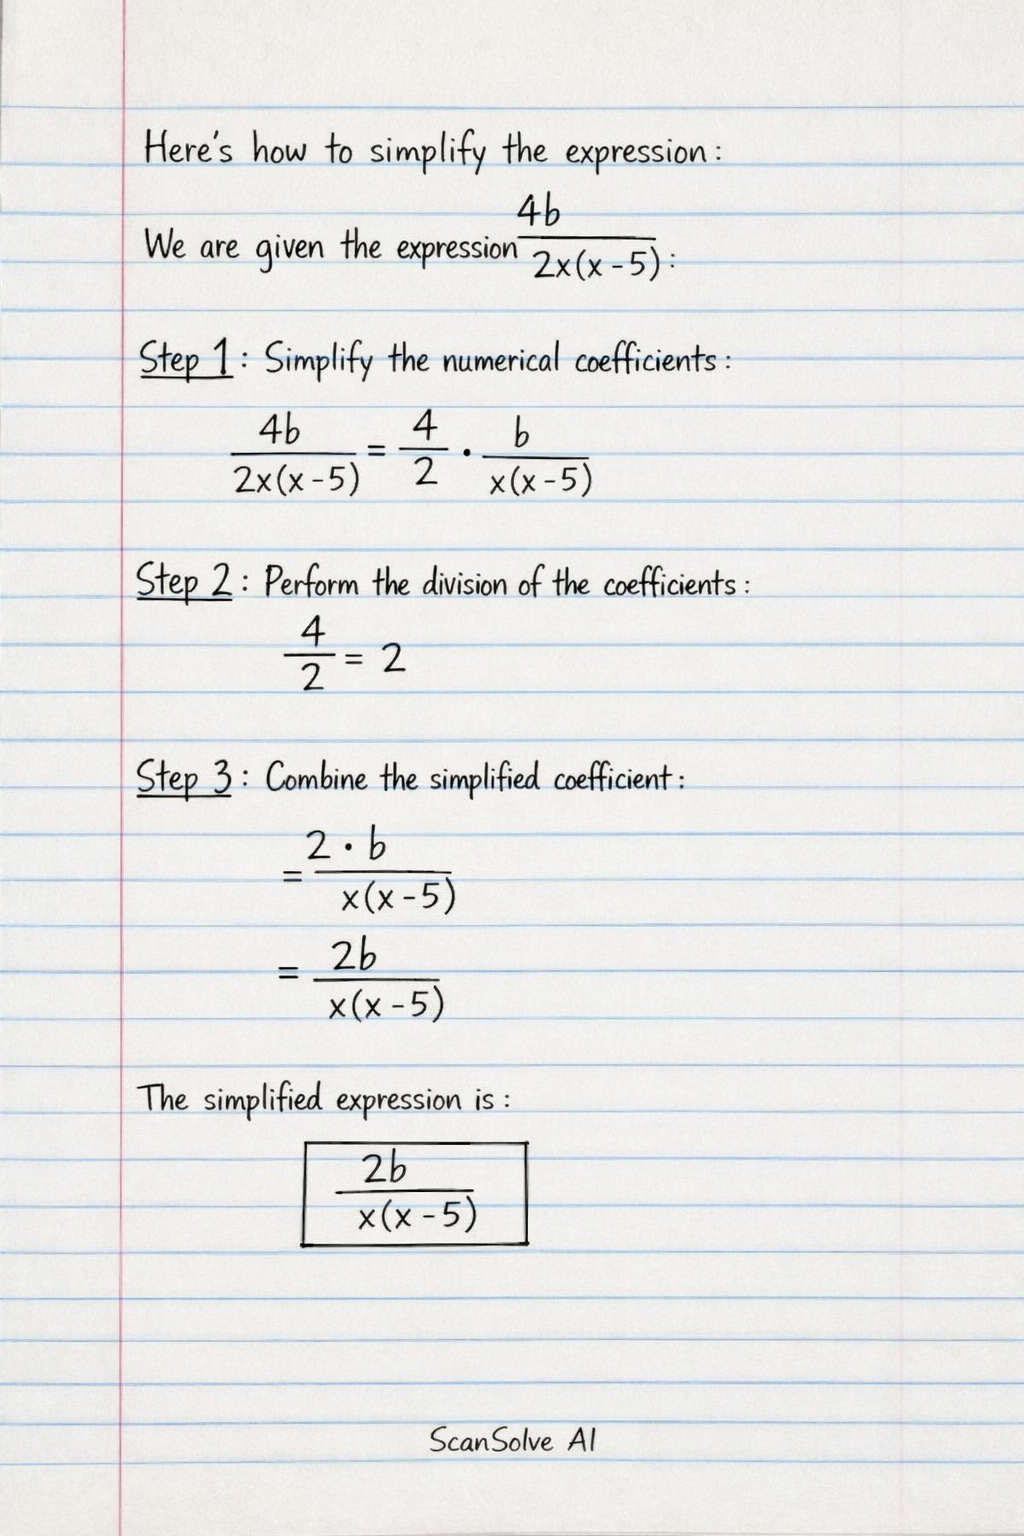 Here's how to simplify the expression:
We are given the expression 4b / 2x(x-5):
Step 1: Simplify the numerical coefficients:
4b / 2x(x-5) = 4/2 · b / x(x-5)
Step 2: Perform the division of the coefficients:
4/2 = 2
Step 3: Combine the simplified coefficient:
= 2 · b / x(x-5)
= 2b / x(x-5)
The simplified expression is:
2b / x(x-5)
ScanSolve AI